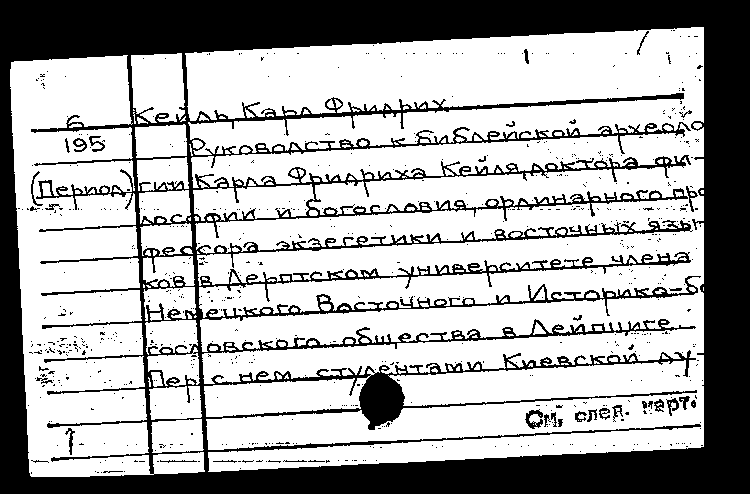 6
195
(Период.)
Кейль, Карл Фридрих.
Руководство к библейской археоло
гии Карла Фридриха Кейля, доктора фи-
лософии и богословия, ординарного про
фессора экзегетики и восточных язы
ков в Дерптском университете, члена
Немецкого Восточного и Историко-бо
гословского общества в Лейпциге.
Пер. с нем. студентами Киевской ду-
См. след. карт.